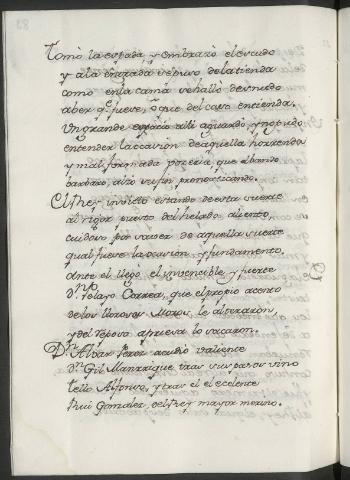 Tomò la espada, y embrazò el escudo
y a la entrada se puso de la tienda
como en la cama se hallò desnudo
a ber qe. fuese, ò que del caso entienda,
Un grande espacio alli aguardò y no pudo
entender la ocasion de aquella horrenda
y mal formada poesia que el bando
barbaro, alzò su fin pronosticando.
El Rey invicto estando de esta suerte
al rigor puesto del helado aliento,
cuidoso por saver de aquella suerte
qual fuese la ocasion y fundamento,
Ante el llegò el invencible, y fuerte
Dn. Pelayo Correa, que el propio acento
de los llorosos Moros le alteraron,
y del reposo apriesa lo sacaron.
Dn. Alvar Perez acudiò valiente
Dn. Gil Manrrique tras sus pasos vino
Tello Alfonso, y tras el el ecelente
Rui Gonzalez, del Rey mayor merino.